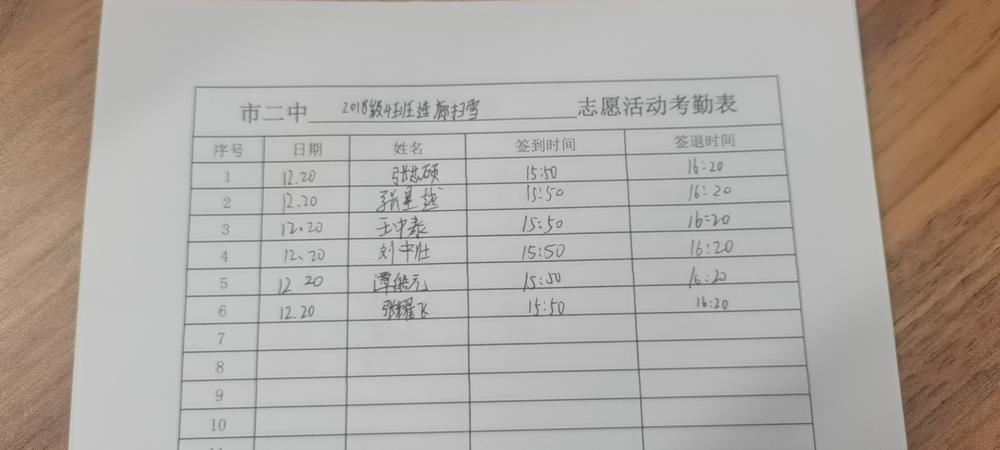 市二中 2018级4班连廊扫雪 志愿活动考勤表
序号 日期 姓名 签到时间 签退时间
1 12.20 张志硕 15:50 16:20
2 12.20 张星越 15:50 16:20
3 12.20 王中泰 15:50 16:20
4 12.20 刘中壮 15:50 16:20
5 12 20 谭皓元 15:50 16:20
6 12.20 张耀飞 15:50 16:20
7
8
9
10